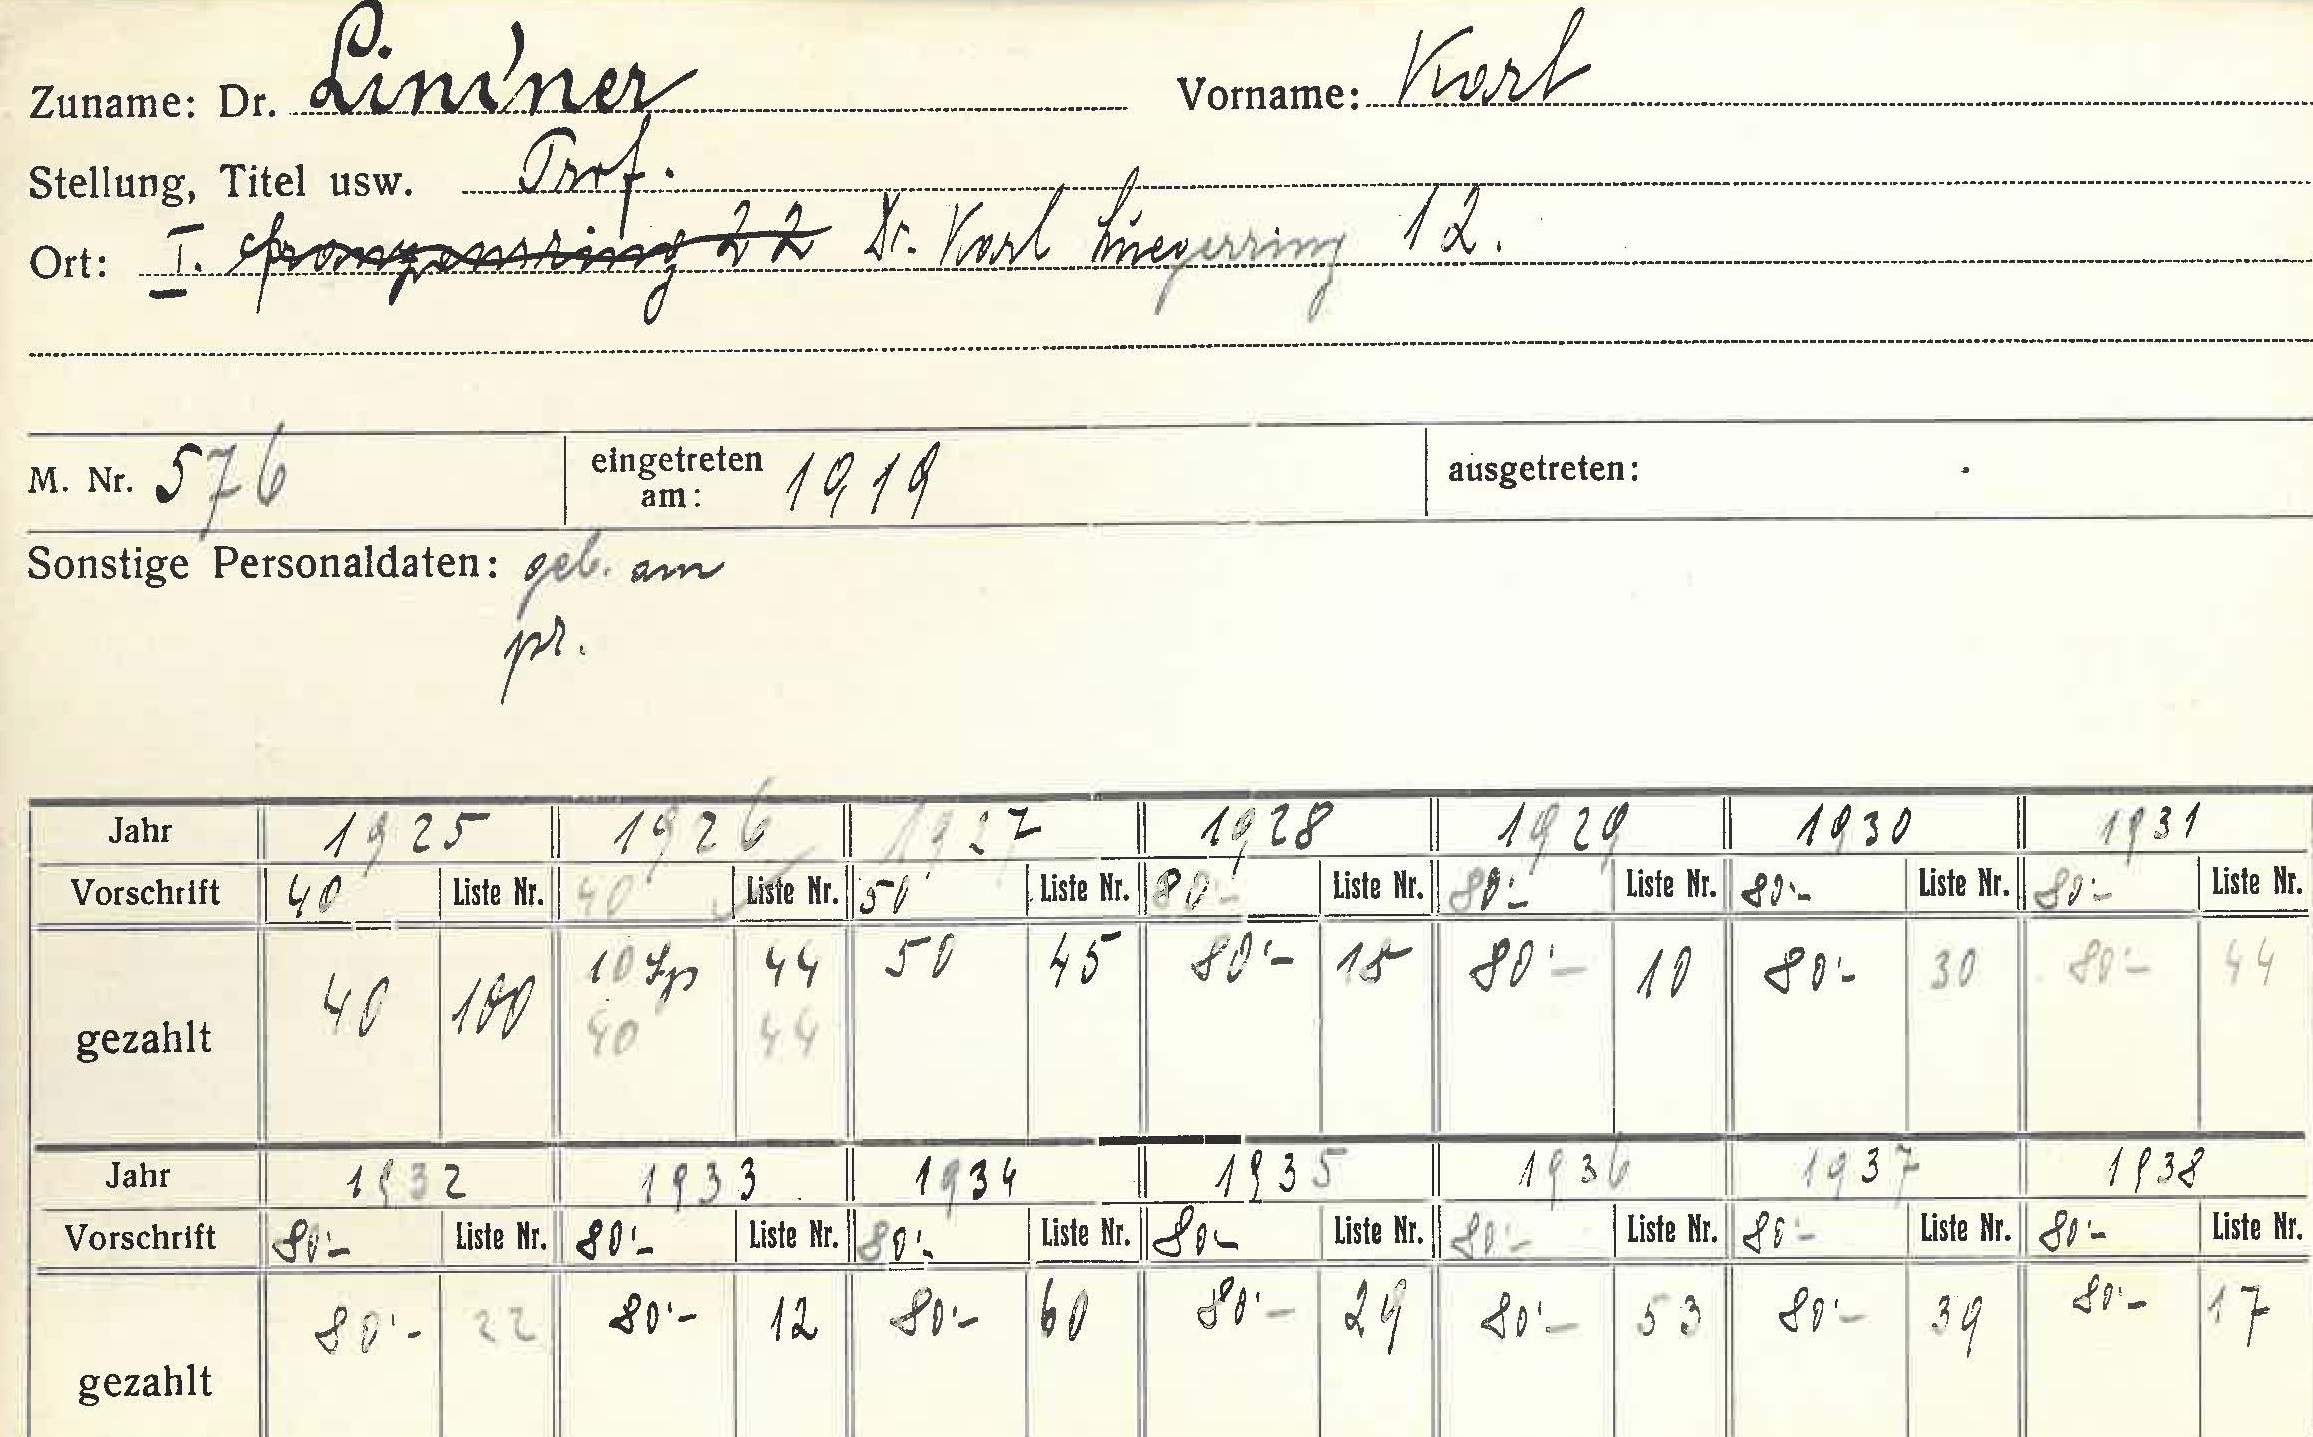 Zuname: Dr. Lininer Vorname: Karl
Stellung, Titel usw. Prof.
Ort: I. Franzensring 22 Dr. Karl Luegerring 12.
M. Nr. 576 eingetreten am: 1919 ausgetreten:
Sonstige Personaldaten: geb. am
pr.
Jahr 1925 1926 1927 1928 1929 1930 1931
Vorschrift 40 Liste Nr. 40 Liste Nr. 50 Liste Nr. 80'- Liste Nr. 80'- Liste Nr. 80'- Liste Nr. 80'- Liste Nr.
gezahlt 40 100 10 Sp 44 50 45 80'- 15 80'- 10 80'- 30 80'- 44
40 44
Jahr 1932 1933 1934 1935 1936 1937 1938
Vorschrift 80'- Liste Nr. 80'- Liste Nr. 80'- Liste Nr. 80- Liste Nr. 80'- Liste Nr. 80'- Liste Nr. 80'- Liste Nr.
gezahlt 80'- 22 80'- 12 80'- 60 80'- 29 80'- 53 80'- 39 80'- 17